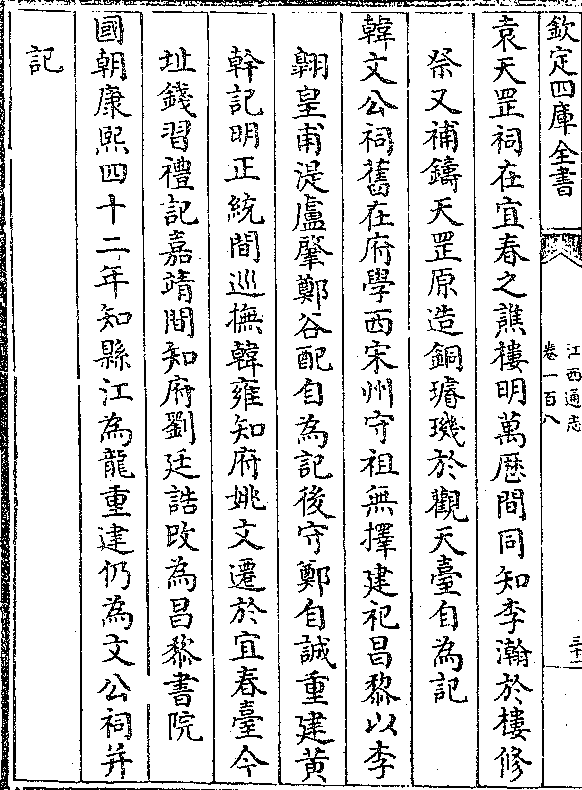 欽定四庫全書
江西通志
卷一百八
袁天罡祠在宜春之譙樓明萬歷間同知李瀚於樓修
祭又補鑄天罡原造銅璿璣於觀天臺自為記
韓文公祠舊在府學西宋州守祖無擇建祀昌黎以李
翺皇甫湜盧肇鄭谷配自為記後守鄭自誠重建黄
幹記明正統間巡撫韓雍知府姚文遷於宜春臺今
址錢習禮記嘉靖間知府劉廷誥改為昌黎書院
國朝康熙四十二年知縣江為龍重建仍為文公祠并
記